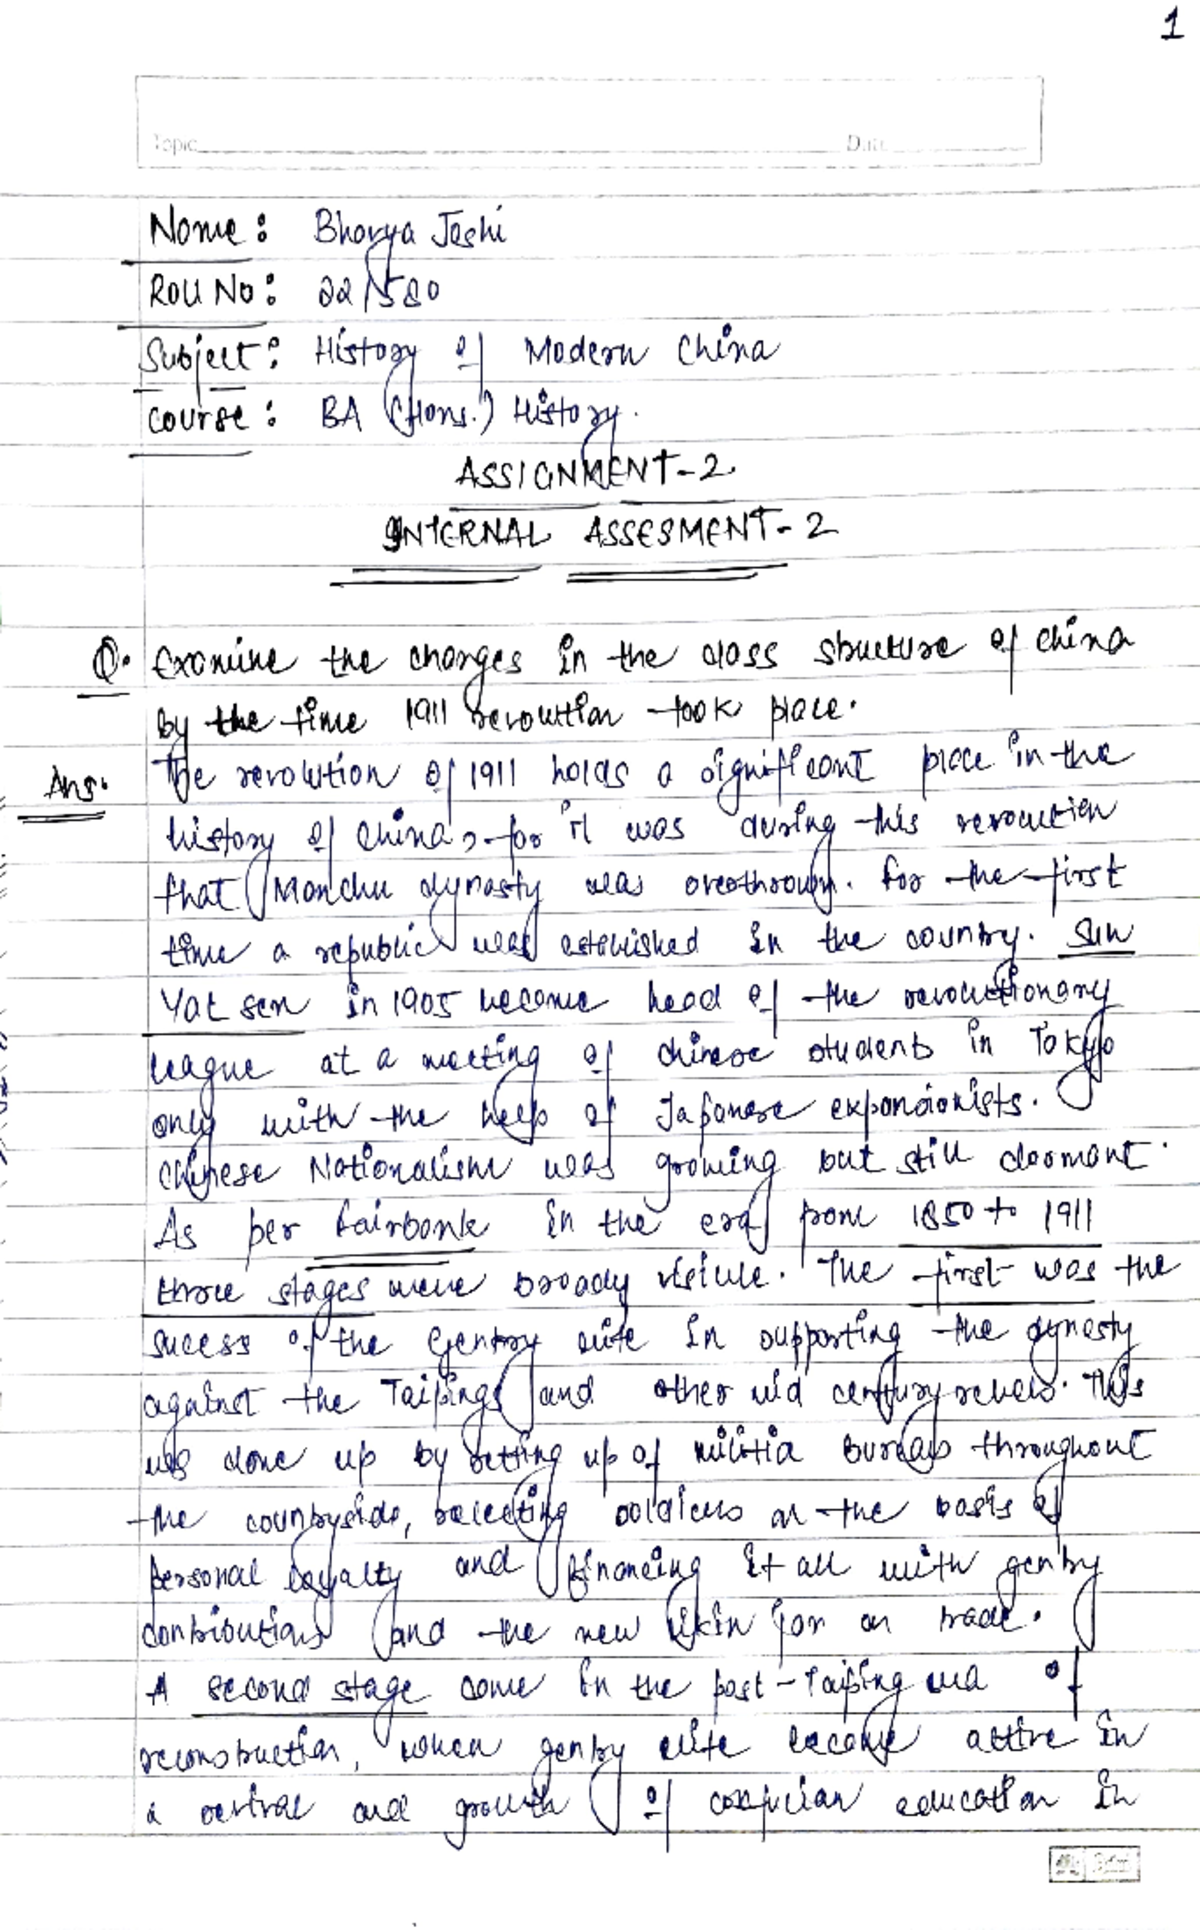 1
Topic Date
Name: Bhavya Joshi
Roll No: 22/580
Subject: History of Modern China
Course: BA (Hons.) History.
ASSIGNMENT-2
INTERNAL ASSESMENT-2
Q. Examine the changes in the class structure of China
by the time 1911 revolution took place.
Ans. The revolution of 1911 holds a significant place in the
history of China, for it was during this revolution
that Manchu dynasty was overthrown. For the first
time a republic was established in the country. Sun
Yat sen in 1905 became head of the revolutionary
league at a meeting of chinese students in Tokyo
only with the help of Japanese expansionists.
Chinese Nationalism was growing but still dormant.
As per Fairbank in the era from 1850 to 1911
three stages were broadly visible. The first was the
sucess of the Gentry elite in supporting the dynesty
against the Taipings and other mid century rebels. This
was done up by setting up of militia bureaus throughout
the countryside, selecting soldiers on the basis of
personal loyalty and financing it all with gentry
contributions and the new likin tax on trade.
A second stage came in the post-Taiping era of
reconstruction, when gentry elite became active in
a revival and growth of confucian education in